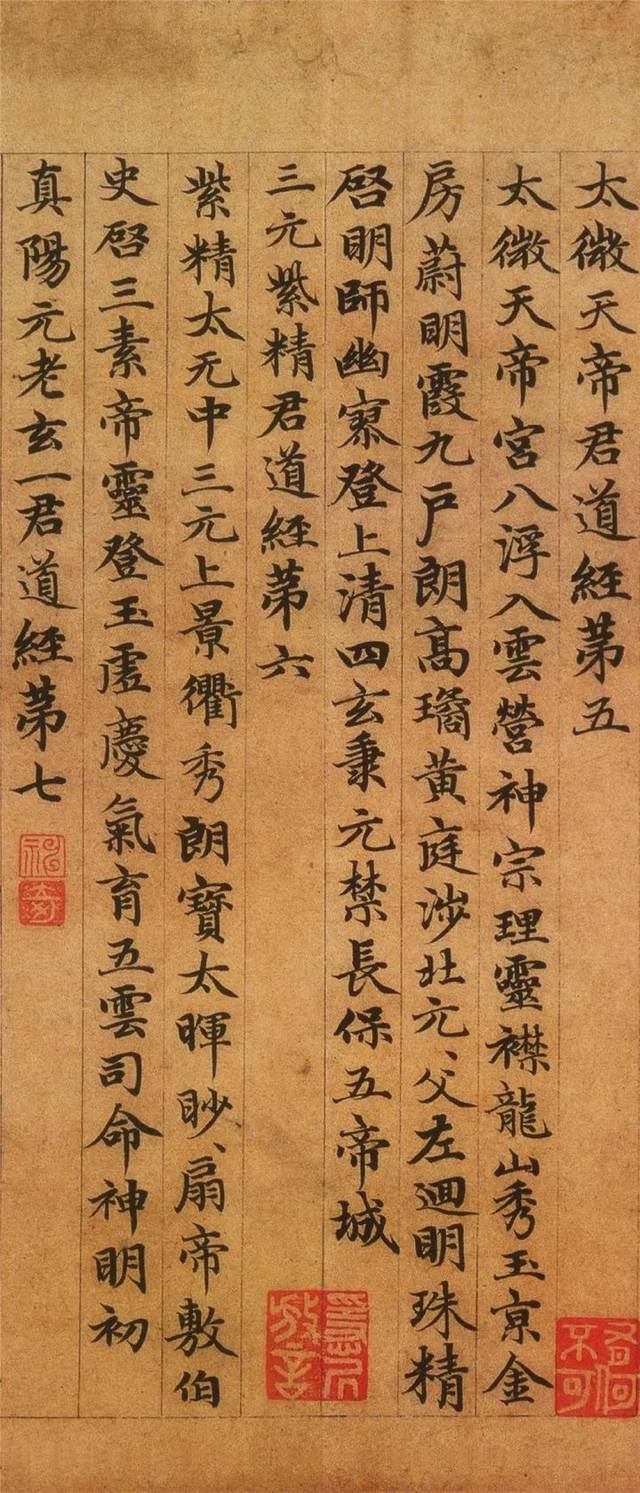 太微天帝君道經苐五
太微天帝宮八浮入雲營神宗理靈襟龍山秀玉京金
房蔚明霞九戶朗高璚黃庭涉壯元、父左迴明珠精
啓明師幽寥登上清四玄秉元禁長保五帝城
三元紫精君道經苐六
紫精太无中三元上景衢秀朗寶太暉眇、扇帝敷伯
史啓三素帝靈登玉虛慶氣育五雲司命神明初
真陽元老玄一君道經苐七